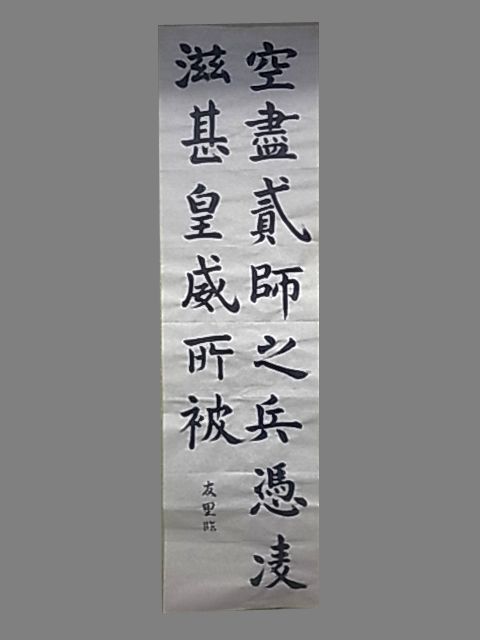 空盡貳師之兵憑凌
滋甚皇威所被
友里臨